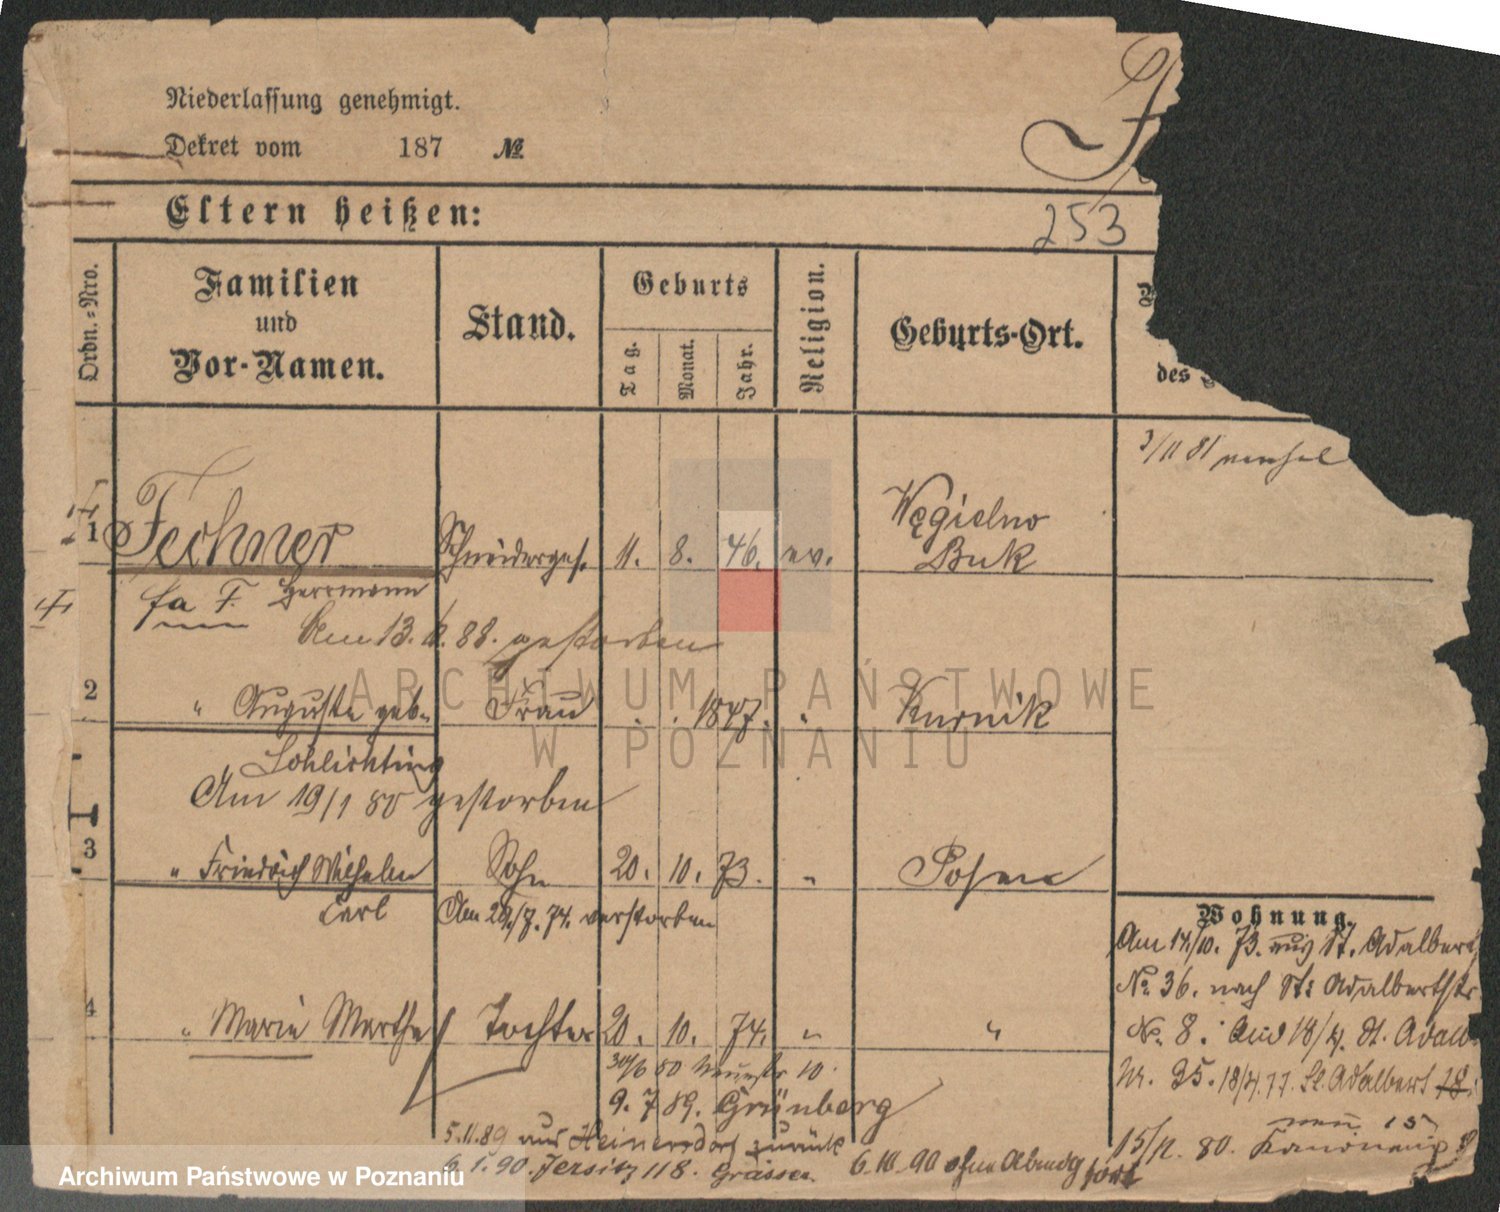 F
Niederlassung genehmigt.
Dekret vom 187 №
Eltern heißen:
253
Ordn.=Nro.
Familien
und
Vor-Namen.
Stand.
Geburts
Tag.
Monat.
Jahr.
Religion.
Geburts-Ort.
des
3/11 81
1 Fechner Schneiderges. 11. 8. 46. ev. Węgielno
Buk
fa F. Herrmann
Am 13. 88. gestorben
2 " Auguste geb. Frau . . 1847. " Kurnik
Schlichting
Am 19/1 80 gestorben
3 " Friedrich Wilhelm Sohn 20. 10. 73. " Posen
Carl Am 29/7. 74. verstorben
4 " Marie Martha Tochter 20. 10. 74. " "
30/6 80 10.
9. 7 89. Grünberg
5.11.89 aus Heinersdorf zurück
6.1.90. Jersitz 118. 6.10.90 ohne Abmdg fort
Wohnung.
Am 14./10. 73. aus St. Adalbert
No. 36. nach St: Adalbertstr
No. 8. 18/4. St. Adalb
Nr. 35. 18/4.77. St. Adalbert 18.
neu 15
15/11. 80.
ARCHIWUM PAŃSTWOWE
W POZNANIU
Archiwum Państwowe w Poznaniu